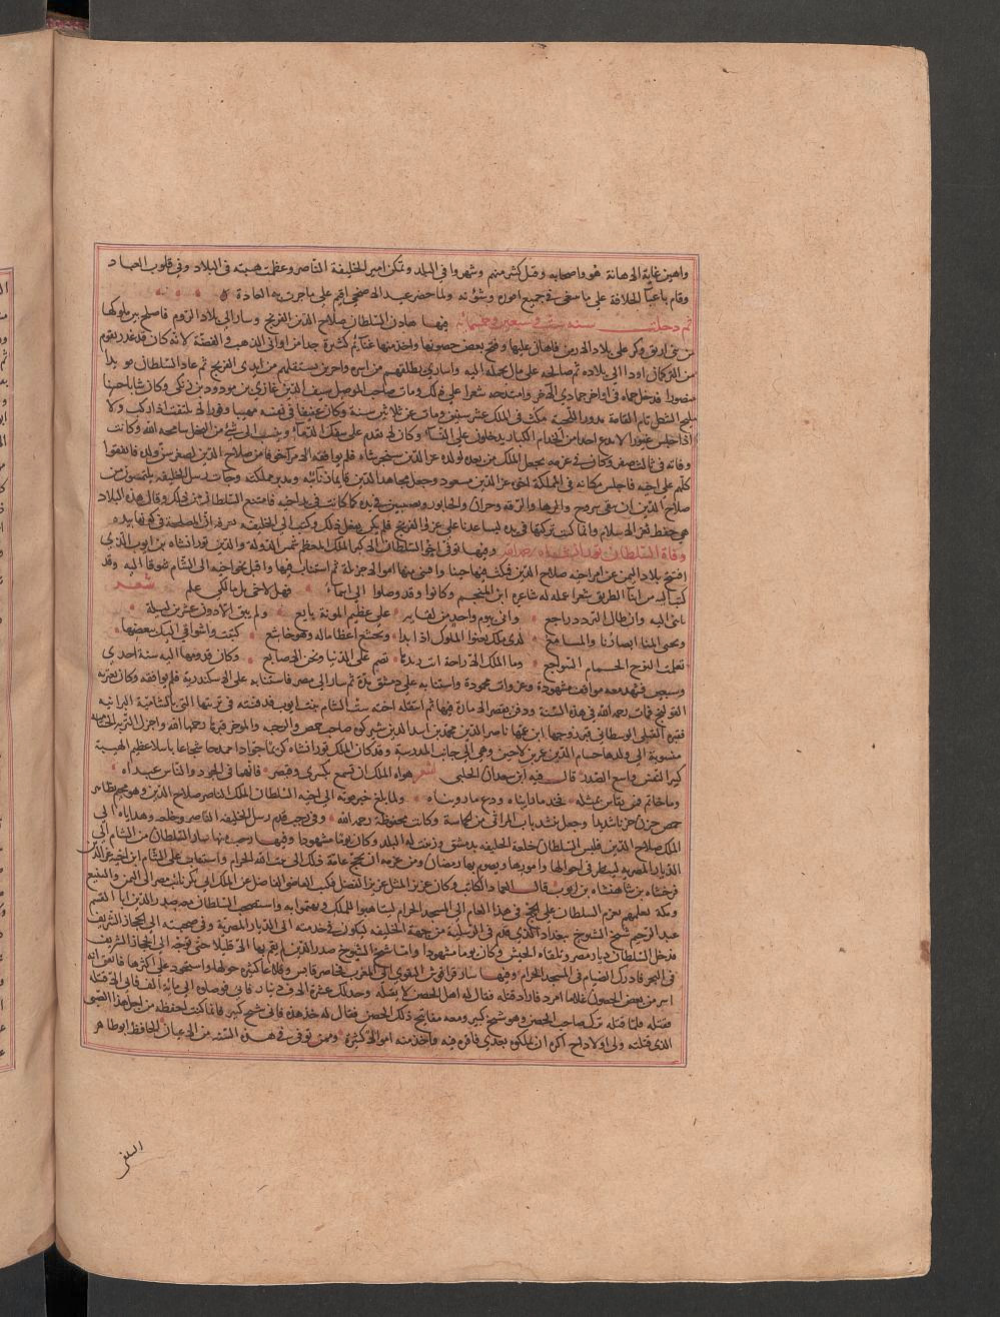 واهين غاية الاهانة هو واصحابه وقتل كثير منهم وشهروا في البلد وتمكن امير الخليفة الناصر وعظمت هيبته في البلاد وفي قلوب العباد
وقام باعباء الخلافة على ما سبق في جميع اموره وشؤنه ولما حضر عيد الاضحى اقيم على ما جرت به العادة
ثم دخلت سنة ست وسبعين وخمسمائة فيها هادن السلطان صلاح الدين الفرنج وسار الى بلاد الروم فاصلح بين ملوكها
من بني ارتق وكر على بلاد الارمن فاهان عليها وفتح بعض حصونها واخذ منها غنائم كثيرة جدا من اواني الذهب والفضة لانه كان قد غدر بقوم
من التركمان اووا الى بلاده ثم صالحه على مال يحمله اليه واسارى يطلقهم من اسره واخرين يستنقذهم من ايدي الفرنج ثم عاد السلطان مويدا
منصورا فدخل حماه في اواخر جمادى الاخر وامتدحه شعرا على ذلك ومات صاحب الموصل سيف الدين غازي بن مودود بن زنكي وكان شابا حسنا
مليح الشكل تام القامة مدور اللحية مكث في الملك عشر سنين ومات عن ثلاثين سنة وكان عفيفا في نفسه مهيبا وقورا لا يلتفت اذا ركب ولا
اذا جلس غيورا لا يدع احدا من الخدام الكبار يدخلون على النساء وكان لا يقدم على سفك الدماء وينسب الى شي من البخل سامحه الله وكانت
وفاته في ثالث صفر وكان في عزمه يجعل الملك من بعده لولده عز الدين سنجر شاه فلم يوافقه الامراء خوفا من صلاح الدين لصغر سن ولده فاتفقوا
كلهم على اخيه فاجلس مكانه في المملكة اخي عز الدين مسعود وجعل مجاهد الدين قايماز نائبه ومدبر مملكته وجاءت رسل الخليفة يلتمسون من
صلاح الدين ان يبقى سروج والرها والرقة وحران والخابور ونصيبين في يده كما كانت في يد اخيه فامتنع السلطان من ذلك وقال هذه البلاد
هي حفظ ثغر الاسلام وانما كنت تركتها في يده ليساعدنا على غزو الفرنج فلم يكن يفعل ذلك وكتب الى الخليفة يعرفه ان المصلحة في كونها بيده
وفاة السلطان توران شاه رحمه الله وفيها توفي اخو السلطان الاكبر الملك المعظم شمس الدولة والدين توران شاه بن ايوب الذي
افتتح بلاد اليمن عن امر اخيه صلاح الدين فمكث فيها حينا واقتنى منها اموالا جزيلة ثم استناب فيها واقبل نحو اخيه الى الشام شوقا اليه وقد
كتب اليه من اثناء الطريق شعرا عمله له شاعره ابن المنجم وكانوا وقد وصلوا الى تيماء فهل لاخي بل مالكي علم شعر
بالتي اليه وان طال التردد راجع واني بيوم واحد من لقايه على عظيم المونة بايع ولم يبق الا دون عشرين ليلة
ويحيى المنا ابصارنا والمسامع لدى ملك يعنوا الملوك اذا بدا وتخشع اعظاما له وهو خاشع كتبت واشواقي اليك ببعضها
تعلمت النوح الحمام السواجع وما الملك الا راحة انت زندها تضم على الدنيا ونحن الاصابع وكان قدومه اليه سنة احدى
وسبعين فشهد معه مواقف مشهودة وغزوات محمودة واستنابه على دمشق مدة ثم سار الى مصر فاستنابه على الاسكندرية فلم توافقه وكان يعتريه
القولنج فمات رحمه الله في هذه السنة ودفن بقصر الامارة فيها ثم نقلته اخته ست الشام بنت ايوب فدفنته في تربتها التي بالشامية البرانية
فقبره القبلي والوسطاني قبر زوجها ابن عمها ناصر الدين محمد بن اسد الدين شيركوه صاحب حمص والرحبة والموخر قبرها رحمها الله واجزل
منسوبة الى ولدها حسام الدين عمر بن لاجين وهي الى جانب المدرسة وقد كان الملك توران شاه كريما جوادا ممدحا شجاعا باسلا عظيم الهيبة
كبير النفس واسع الصدر قال فيه ابن سعدان الحلبي شعر هو الملك ان تسمع بكسرى وقيصر فانهما في الجود والناس عبداه
وما حاتم ممن يقاس بمثله فخذ ما رايناه ودع ما رويناه ولما بلغ خبر موته الى اخيه السلطان الملك الناصر صلاح الدين وهو مخيم بظاهر
حمص حزن حزنا شديدا وجعل ينشد باب المراثي من الحماسة وكانت محفوظة رحمه الله وفي رجب قدم رسل الخليفة الناصر وخلعه وهداياه الى
الملك صلاح الدين فلبس السلطان خلعة الخليفة بدمشق وزينت له البلد وكان يوما مشهودا وفيها رجب منها سار السلطان من الشام الى
الديار المصرية لينظر في احوالها وامورها ويصوم بها رمضان ومن عزمه ان يحج عامه ذلك الى بيت الله الحرام واستناب على الشام ابن اخيه عز الدين
فرخشاه بن شاهنشاه بن ايوب قال العماد الكاتب وكان عزيز المثل غزير الفضل فكتب القاضي الفاضل عن الملك ابي بكر نائب مصر الى اليمن والبقيع
ومكة يعلمهم بعزم السلطان على الحج في هذا العام الى المسجد الحرام ليتاهبوا للملك ويهتموا به واستصحب السلطان معه صدر الدين ابا القسم
عبد الرحيم شيخ الشيوخ ببغداد الذي قدم في الرسلية من جهة الخليفة ليكون في خدمته الى الديار المصرية وفي صحبته الى الحجاز الشريف
فدخل السلطان ديار مصر وتلقاه الجيش وكان يوما مشهودا واما شيخ الشيوخ صدر الدين لم يقم بها الا قليلا حتى توجه الى الحجاز الشريف
في البحر فادرك الصيام في المسجد الحرام وفيها سار قراقوش التقوي الى المغرب فحاصر قابس وقلاعا كثيرة حولها واستحوذ على اكثرها فاتفق انه
اسر من بعض الحصون غلاما امرد فاراد قتله فقال له اهل الحصن لا تقتله وخذ لك عشرة الاف دينار فابى فوصلوه الى مائة الف فابى الا قتله
فقتله فلما قتله نزل صاحب الحصن وهو شيخ كبير ومعه مفاتيح ذلك الحصن فقال له خذ هذه فاني شيخ كبير فانما كنت احفظه من اجل هذا الصبي
الذي قتلته ولي اولاد اخ اكره ان يملكوه بعدي فاقره فيه واخذ منه اموالا كثيرة وممن توفي في هذه السنة من الاعيان الحافظ ابو طاهر
السلفي